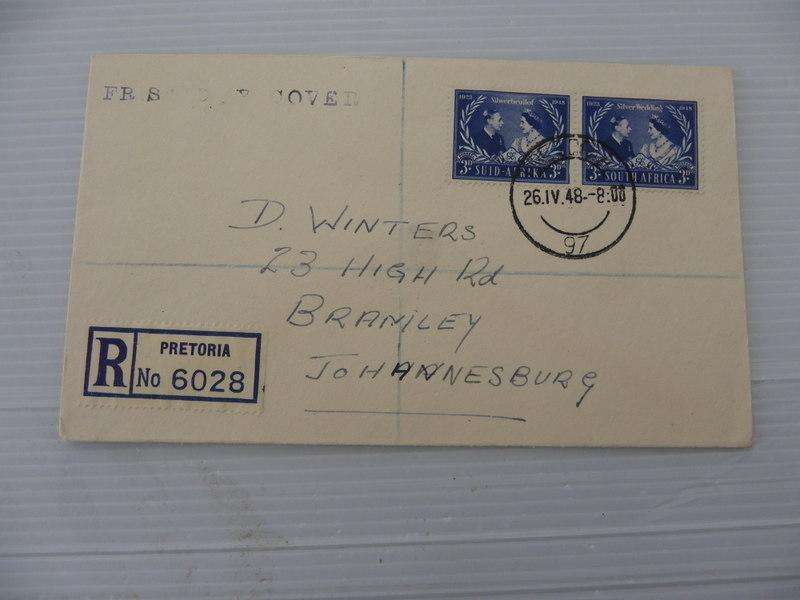 COVER
1923 Silwerbruilof 1948
3D SUID-AFRIKA 3D
1923 Silver Wedding 1948
3D SOUTH AFRICA 3D
26.IV.48--8:00
97
D. WINTERS
23 HIGH Rd
BRAMLEY
JOHANNESBURG
R
PRETORIA
No 6028